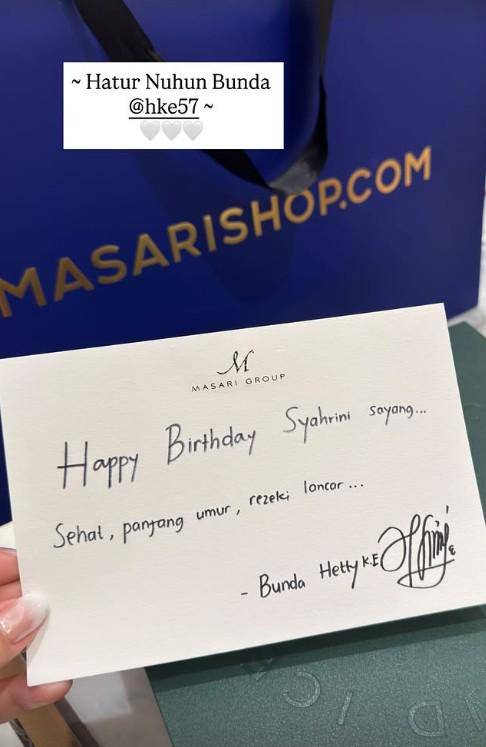 ~ Hatur Nuhun Bunda
@hke57 ~
MASARISHOP.COM
M
MASARI GROUP
Happy Birthday Syahrini sayang...
Sehat, panjang umur, rezeki lancar...
- Bunda Hetty K.E